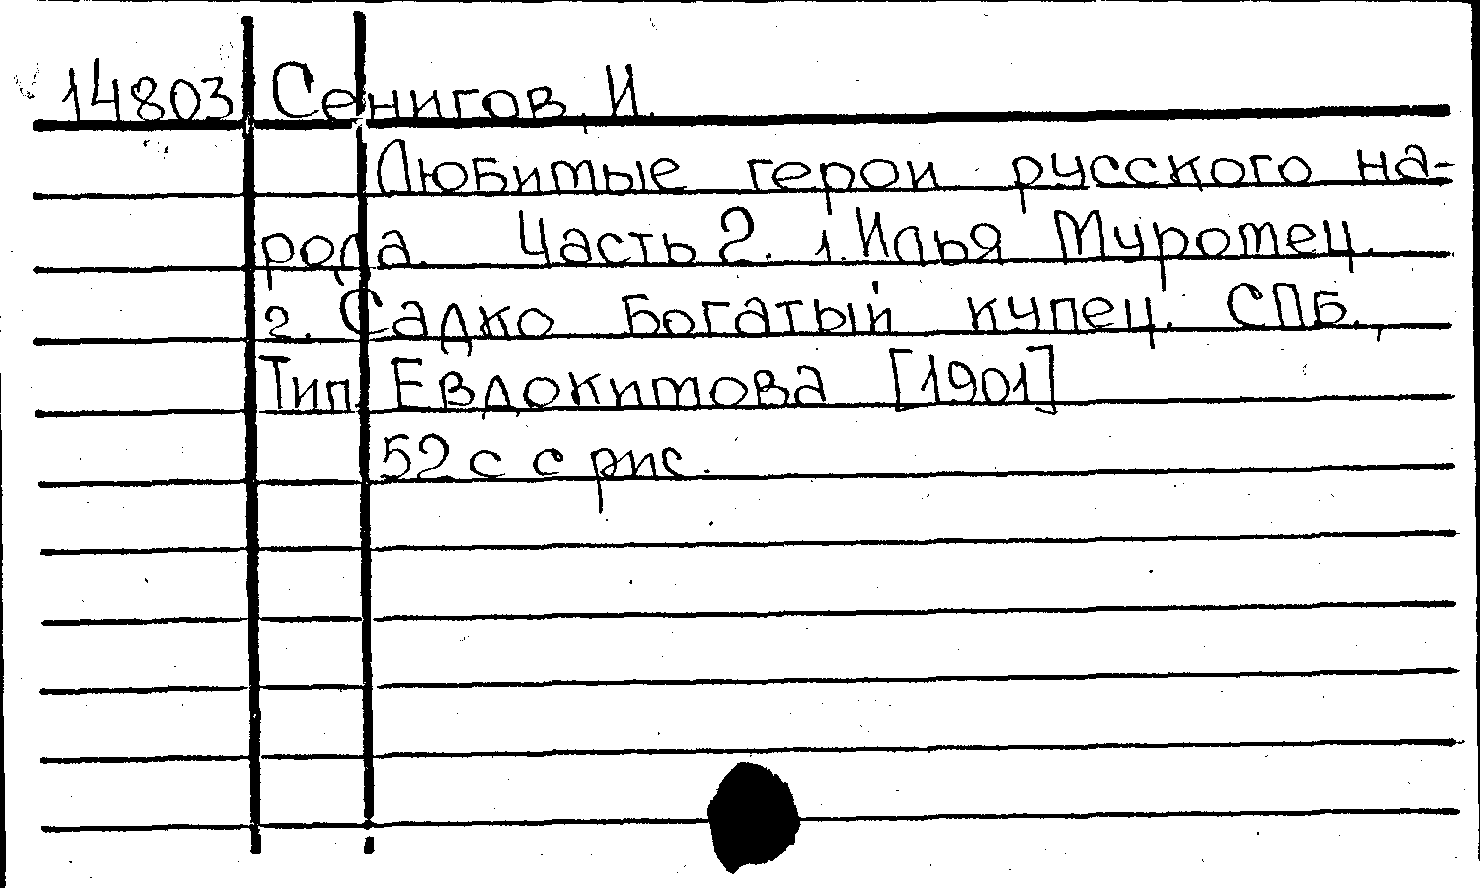 14803 Сенигов, И.
Любимые герои русского на-
рода. Часть 2. 1. Илья Муромец.
2. Садко богатый купец. СПб.,
Тип. Евдокимова [1901]
52 с с рис.